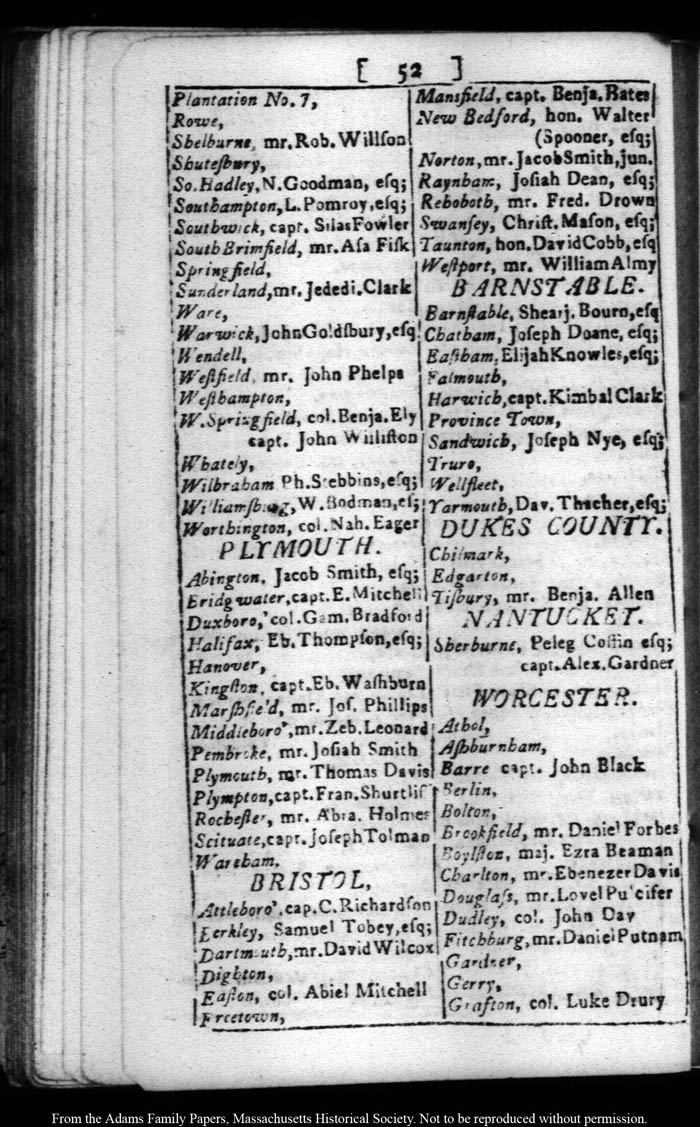 [ 52 ]
Plantation No. 7,
Rowe,
Shelburne, mr. Rob. Willſon
Shuteſbury,
So. Hadley, N. Goodman, eſq;
Southampton, L. Pomroy, eſq;
Southwick, capt. Silas Fowler
South Brimfield, mr. Aſa Fiſk
Springfield,
Sunderland, mr. Jededi. Clark
Ware,
Warwick, John Goldſbury, eſq
Wendell,
Weſtfield, mr. John Phelps
Weſthampton,
W. Springfield, col. Benja. Ely
capt. John Williſton
Whately,
Wilbraham Ph. Stebbins, eſq;
Williamſburg, W. Bodman, eſ;
Worthington, col. Nah. Eager
PLYMOUTH.
Abington, Jacob Smith, eſq;
Bridgwater, capt. E. Mitchell
Duxboro,' col. Gam. Bradford
Halifax, Eb. Thompſon, eſq;
Hanover,
Kingſton, capt. Eb. Waſhburn
Marſhfie'd, mr. Joſ. Phillips
Middleboro', mr. Zeb. Leonard
Pembroke, mr. Joſiah Smith
Plymouth, mr. Thomas Davis
Plympton, capt. Fran. Shurtliſ
Rocheſter, mr. Abra. Holmes
Scituate, capt. Joſeph Tolman
Wareham.
BRISTOL,
Attleboro', cap. C. Richardſon
Berkley, Samuel Tobey, eſq;
Dartmouth, mr. David Wilcox
Dighton,
Eaſton, col. Abiel Mitchell
Freetown,
Mansfield, capt. Benja. Bates
New Bedford, hon. Walter
(Spooner, eſq;
Norton, mr. Jacob Smith, jun.
Raynham, Joſiah Dean, eſq;
Rehoboth, mr. Fred. Drown
Swanſey, Chriſt. Maſon, eſq;
Taunton, hon. David Cobb, eſq
Weſtport, mr. William Almy
BARNSTABLE.
Barnſtable, Shearj. Bourn, eſq
Chatham, Joſeph Doane, eſq;
Eaſtham, Elijah Knowles, eſq;
Falmouth,
Harwich, capt. Kimbal Clark
Province Town,
Sandwich, Joſeph Nye, eſq;
Truro,
Wellfleet,
Yarmouth, Dav. Thacher, eſq;
DUKES COUNTY.
Chilmark,
Edgarton,
Tiſbury, mr. Benja. Allen
NANTUCKET.
Sherburne, Peleg Coffin eſq;
capt. Alex. Gardner
WORCESTER.
Athol,
Aſhburnham,
Barre capt. John Black
Berlin,
Bolton,
Brookfield, mr. Daniel Forbes
Boylſton, maj. Ezra Beaman
Charlton, mr. Ebenezer Davis
Douglaſs, mr. Lovel Pu'cifer
Dudley, col. John Day
Fitchburg, mr. Daniel Putnam
Gardner,
Gerry,
Grafton, col. Luke Drury
From the Adams Family Papers, Massachusetts Historical Society. Not to be reproduced without permission.